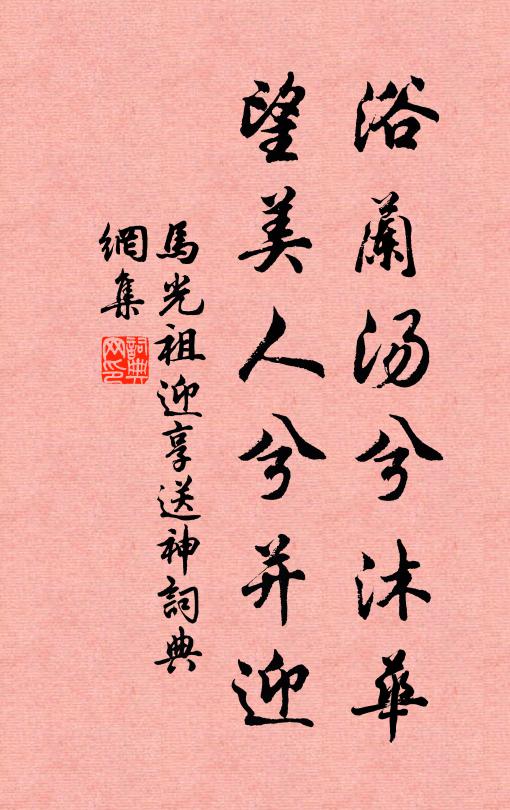 浴蘭湯兮沐華
望美人兮并迎
馬光祖迎享送神詞典
網集
詞典網印